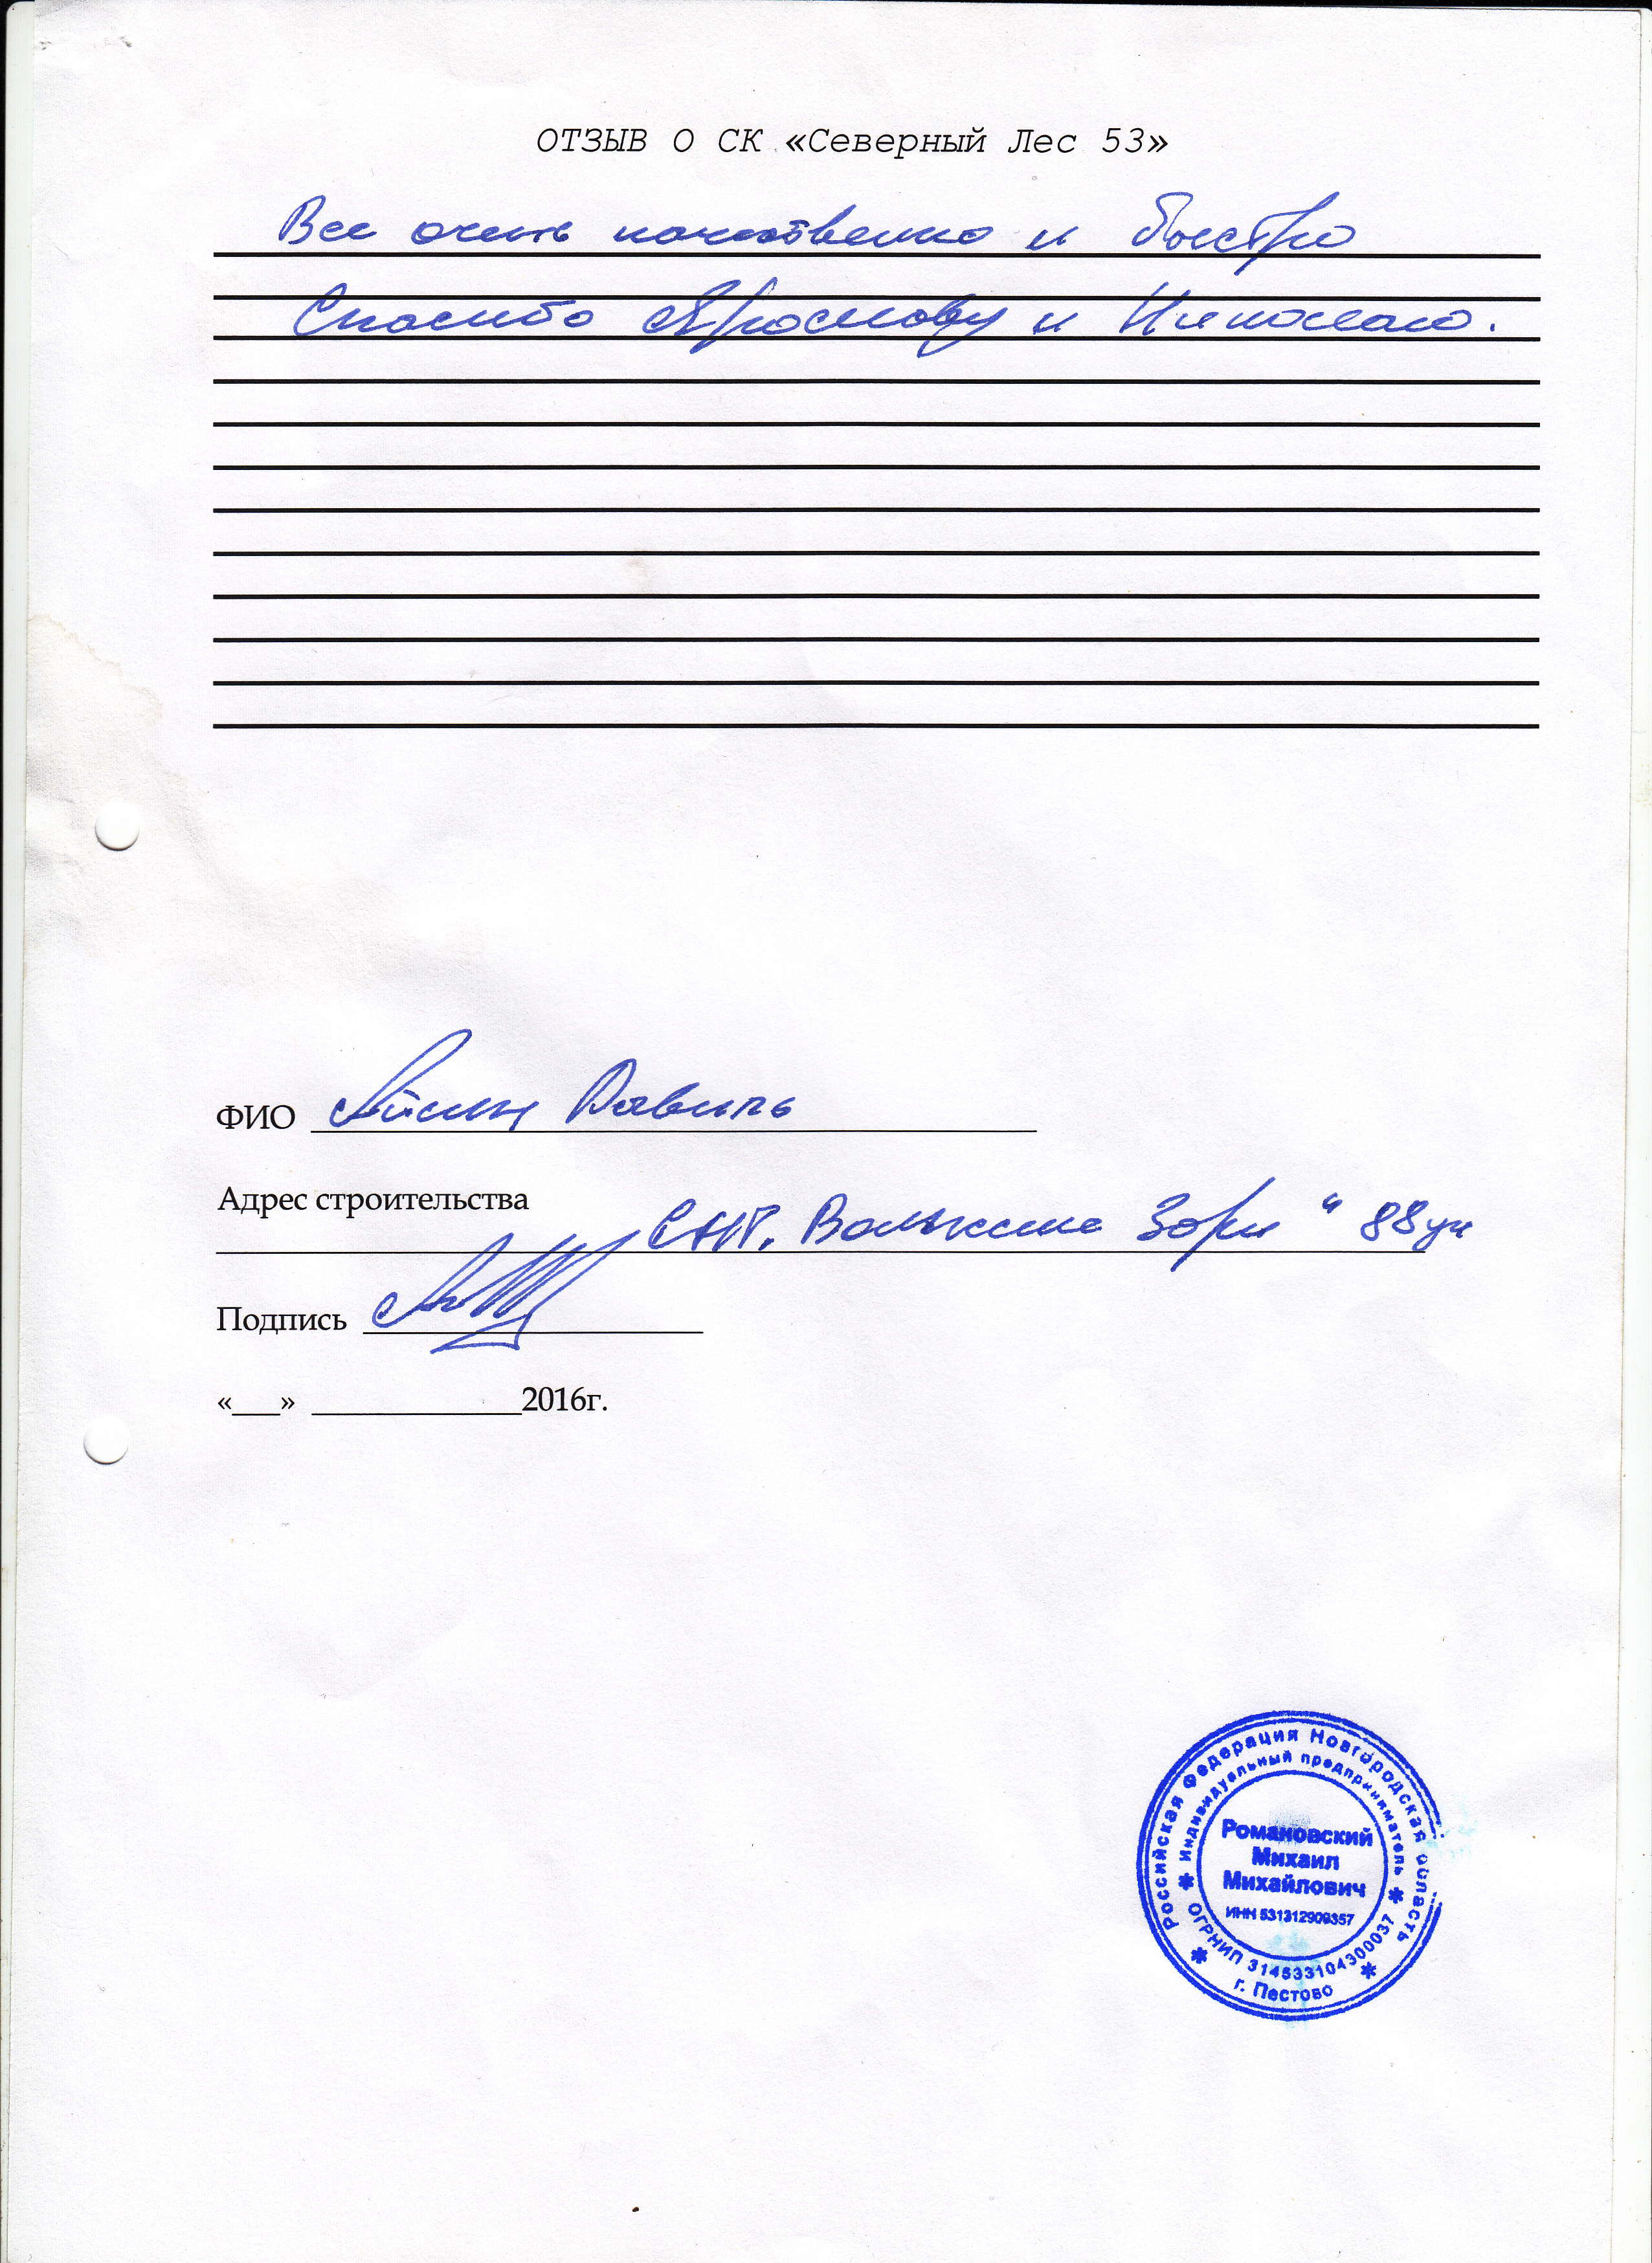 ОТЗЫВ О СК «Северный Лес 53»
Все очень качественно и быстро
Спасибо Ярославу и Николаю.
ФИО Айсин Равиль
Адрес строительства
СНТ. Волжские Зори" 88 уч
Подпись
«___» ____________2016г.
Российская Федерация Новгородская область
Индивидуальный предприниматель
Романовский
Михаил
Михайлович
ИНН 531312909357
ОГРНИП 314533104300037
г. Пестово